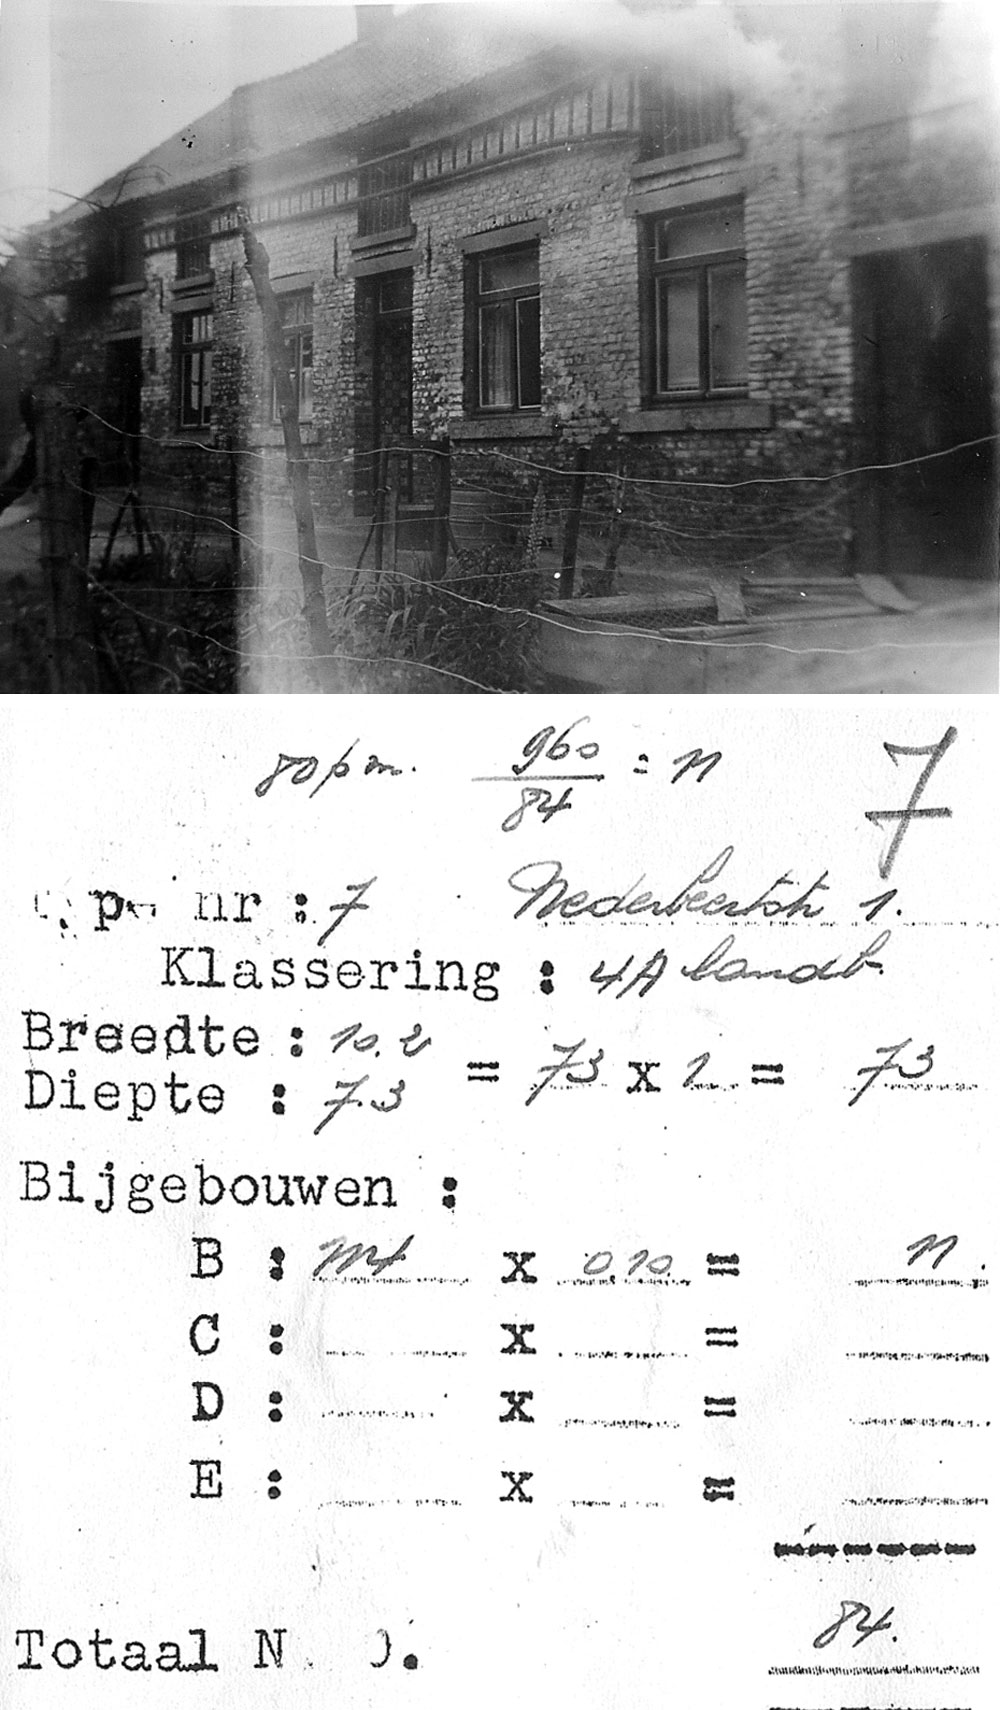 80 p m. 960 / 84 = 11 7
nr : 7 1.
Klassering : 4A landb.
Breedte : 10.2
= 73 x 1 = 73
Diepte : 7.3
Bijgebouwen :
B : x 0.10 = 11.
C : x =
D : x =
E : x =
84.
Totaal N